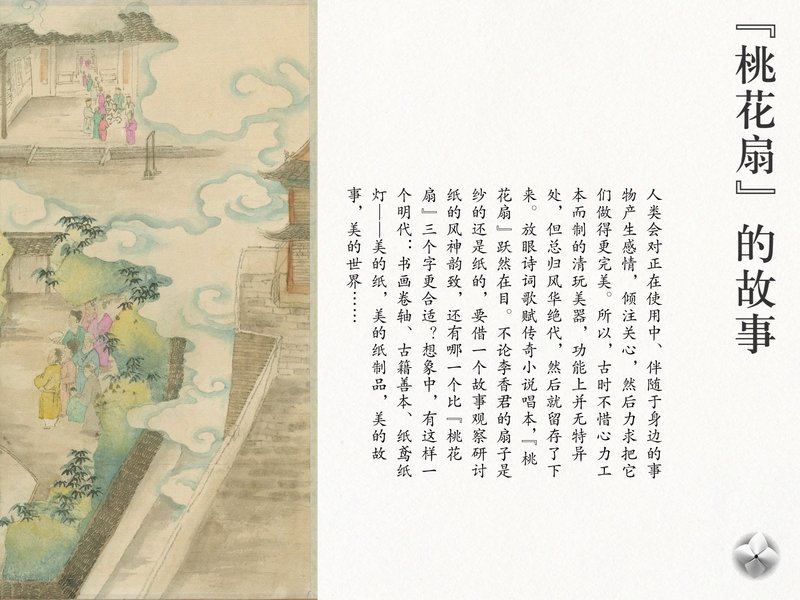 『桃花扇』的故事
人类会对正在使用中、伴随于身边的事
物产生感情，倾注关心，然后力求把它
们做得更完美。所以，古时不惜心力工
本而制的清玩美器，功能上并无特异
处，但总归风华绝代，然后就留存了下
来。放眼诗词歌赋传奇小说唱本，『桃
花扇』跃然在目。不论李香君的扇子是
纱的还是纸的，要借一个故事观察研讨
纸的风神韵致，还有哪一个比『桃花
扇』三个字更合适？想象中，有这样一
个明代：书画卷轴、古籍善本、纸鸢纸
灯——美的纸，美的纸制品，美的故
事，美的世界……